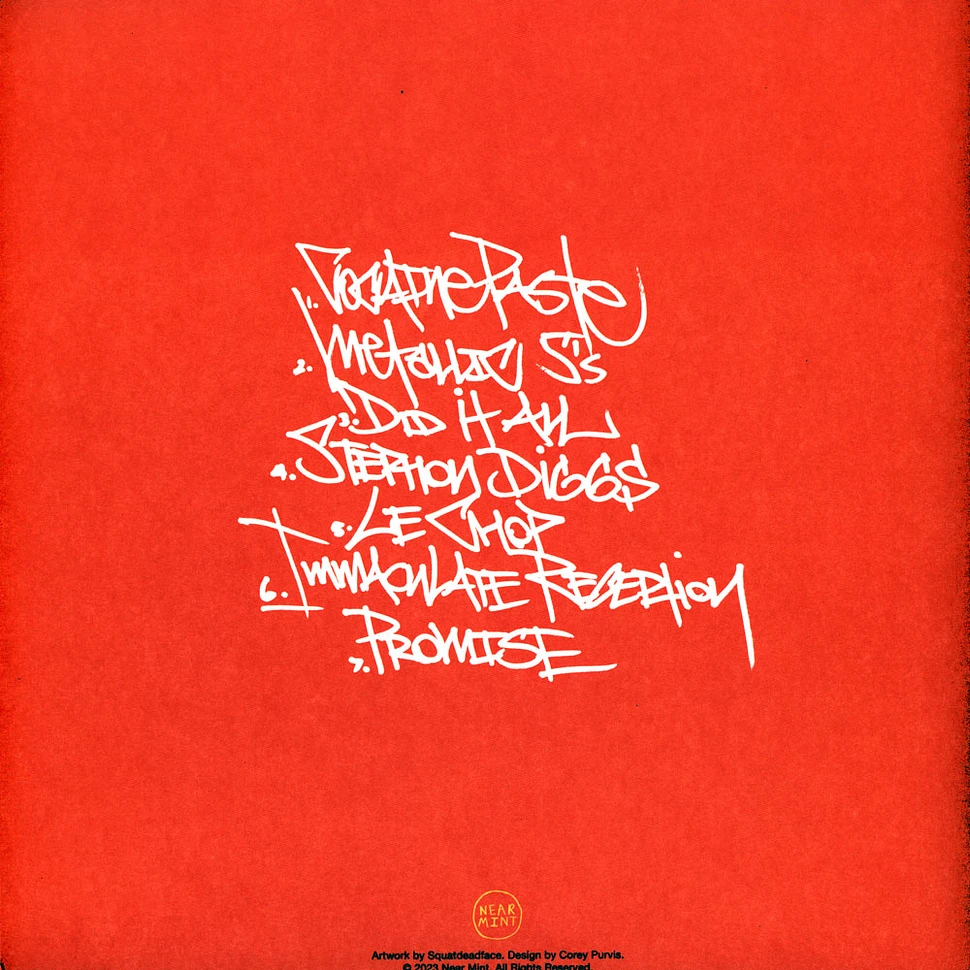 1. Cocaine Paste
2. Metallic 5's
3. Did it All
4. Stephon Diggs
5. Le Chop
6. Immaculate Reception
7. Promise
NEAR
MINT
Artwork by Squatdeadface. Design by Corey Purvis.
© 2023 Near Mint. All Rights Reserved.